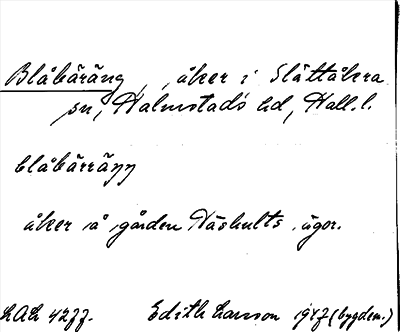 Blåbäräng, åker i Slättåkra
sn, Halmstads hd, Hall.l.
blåbärräŋŋ
åker å gården Häshults ägor.
LAL 4277. Edith Larsson 1947 (bygdem.)